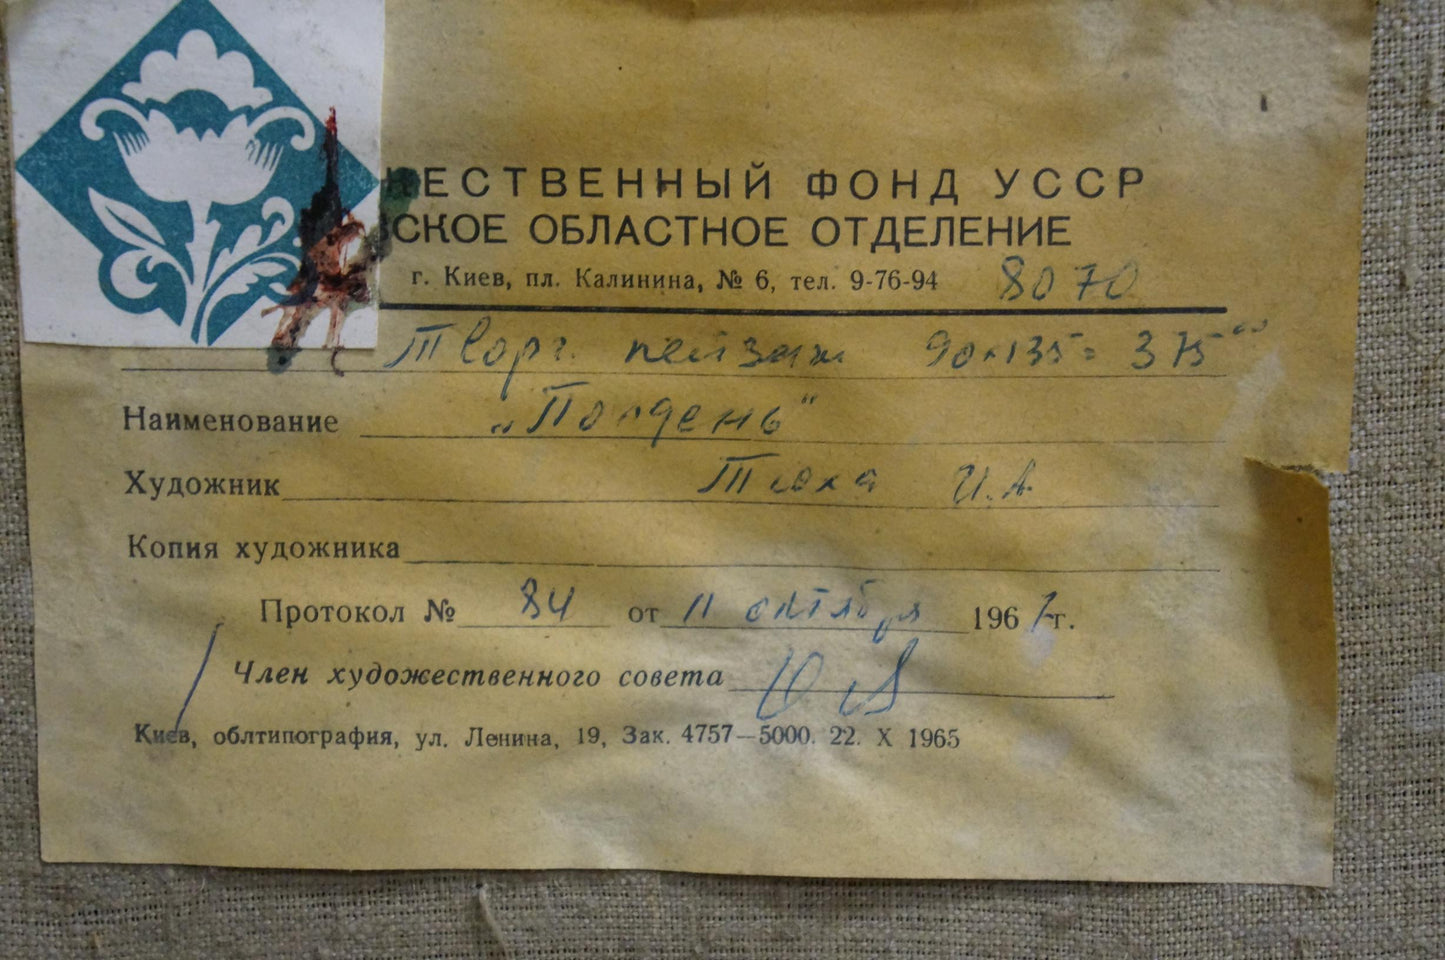 ЖЕСТВЕННЫЙ ФОНД УССР
ВСКОЕ ОБЛАСТНОЕ ОТДЕЛЕНИЕ
г. Киев, пл. Калинина, № 6, тел. 9-76-94 8070
Творч. пейзаж 90×135 = 375 00
Наименование „Полдень"
Художник Тюха И.А
Копия художника
Протокол № 84 от 11 октября 1967 г.
Член художественного совета
Киев, облтипография, ул. Ленина, 19, Зак. 4757—5000. 22. X 1965